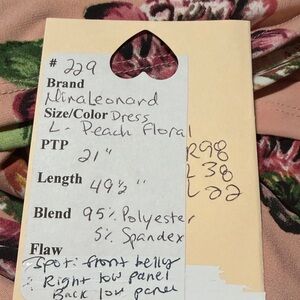 # 229
Brand
NinaLeonard
Size/Color Dress
L - Peach Floral
PTP
21"
R98
L38
L22
Length 49½"
Blend 95% Polyester
5% Spandex
Flaw
Spot: front belly
: Right low panel
Back low panel